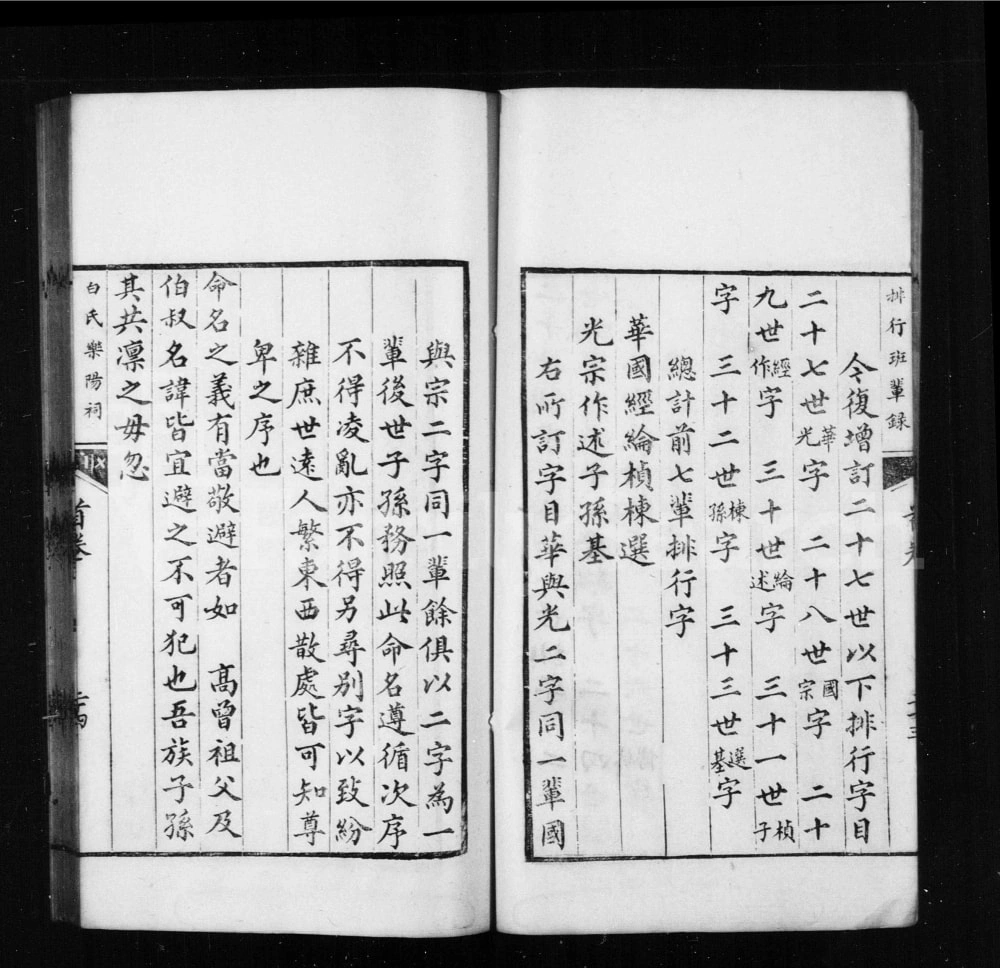 排行班輩録
今復增訂二十七世以下排行字目
二十七世華光字 二十八世國宗字 二十
九世經作字 三十世綸述字 三十一世楨子
字 三十二世棟孫字 三十三世選基字
總計前七輩排行字
華國經綸楨棟選
光宗作述子孫基
右所訂字目華與光二字同一輩國
與宗二字同一輩餘俱以二字為一
輩後世子孫務照此命名遵循次序
不得凌亂亦不得另尋別字以致紛
雜庶世遠人繁東西散處皆可知尊
卑之序也
命名之義有當敬避者如 高曾祖父及
伯叔名諱皆宜避之不可犯也吾族子孫
其共凜之毋忽
白氏樂陽祠
首卷